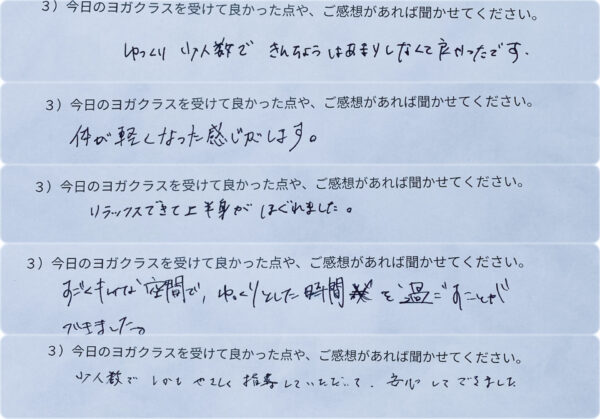 3）今日のヨガクラスを受けて良かった点や、ご感想があれば聞かせてください。
ゆっくり 少人数で きんちょうはあまりしなくて良かったです.
3）今日のヨガクラスを受けて良かった点や、ご感想があれば聞かせてください。
体が軽くなった感じがします。
3）今日のヨガクラスを受けて良かった点や、ご感想があれば聞かせてください。
リラックスできて上半身がほぐれました。
3）今日のヨガクラスを受けて良かった点や、ご感想があれば聞かせてください。
すごくキレイな空間で、ゆっくりとした時間を過ごすことが
できました。
3）今日のヨガクラスを受けて良かった点や、ご感想があれば聞かせてください。
少人数で しかも やさしく 指導していただいて、安心してできました